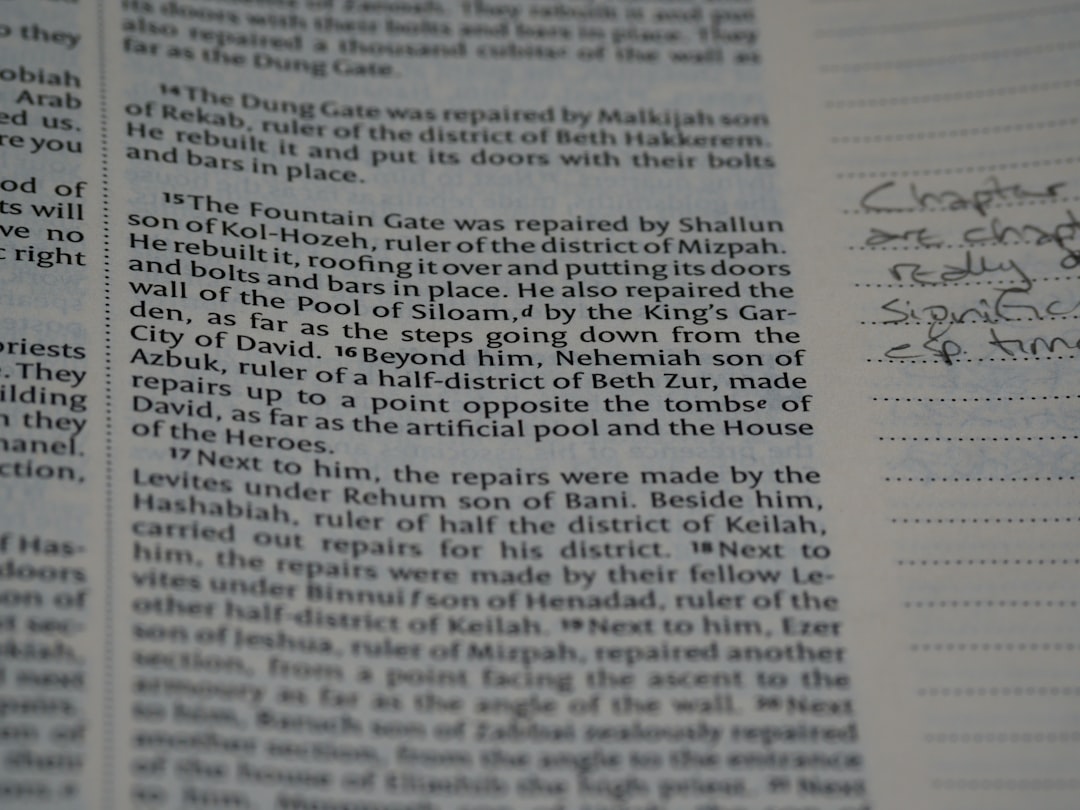 o they
obiah
Arab
ed us.
re you
od of
ts will
ve no
t right
priests
. They
ilding
n they
nanel.
ction,
f Has-
doors
on of
its doors with their bolts and bars in place. They
also repaired a thousand cubits of the wall as
far as the Dung Gate.
14 The Dung Gate was repaired by Malkijah son
of Rekab, ruler of the district of Beth Hakkerem.
He rebuilt it and put its doors with their bolts
and bars in place.
15 The Fountain Gate was repaired by Shallun
son of Kol-Hozeh, ruler of the district of Mizpah.
He rebuilt it, roofing it over and putting its doors
and bolts and bars in place. He also repaired the
wall of the Pool of Siloam,d by the King's Gar-
den, as far as the steps going down from the
City of David. 16 Beyond him, Nehemiah son of
Azbuk, ruler of a half-district of Beth Zur, made
repairs up to a point opposite the tombse of
David, as far as the artificial pool and the House
of the Heroes.
17 Next to him, the repairs were made by the
Levites under Rehum son of Bani. Beside him,
Hashabiah, ruler of half the district of Keilah,
carried out repairs for his district. 18 Next to
him, the repairs were made by their fellow Le-
vites under Binnui f son of Henadad, ruler of the
other half-district of Keilah. 19 Next to him, Ezer
son of Jeshua, ruler of Mizpah, repaired another
section, from a point facing the ascent to the
armoury as far as the angle of the wall. 20 Next
to him, Baruch son of Zabbai zealously repaired
another section, from the angle to the entrance
of the house of Eliashib the high priest. 21 Next
Chapter
are chapt
really
signific
esp. time